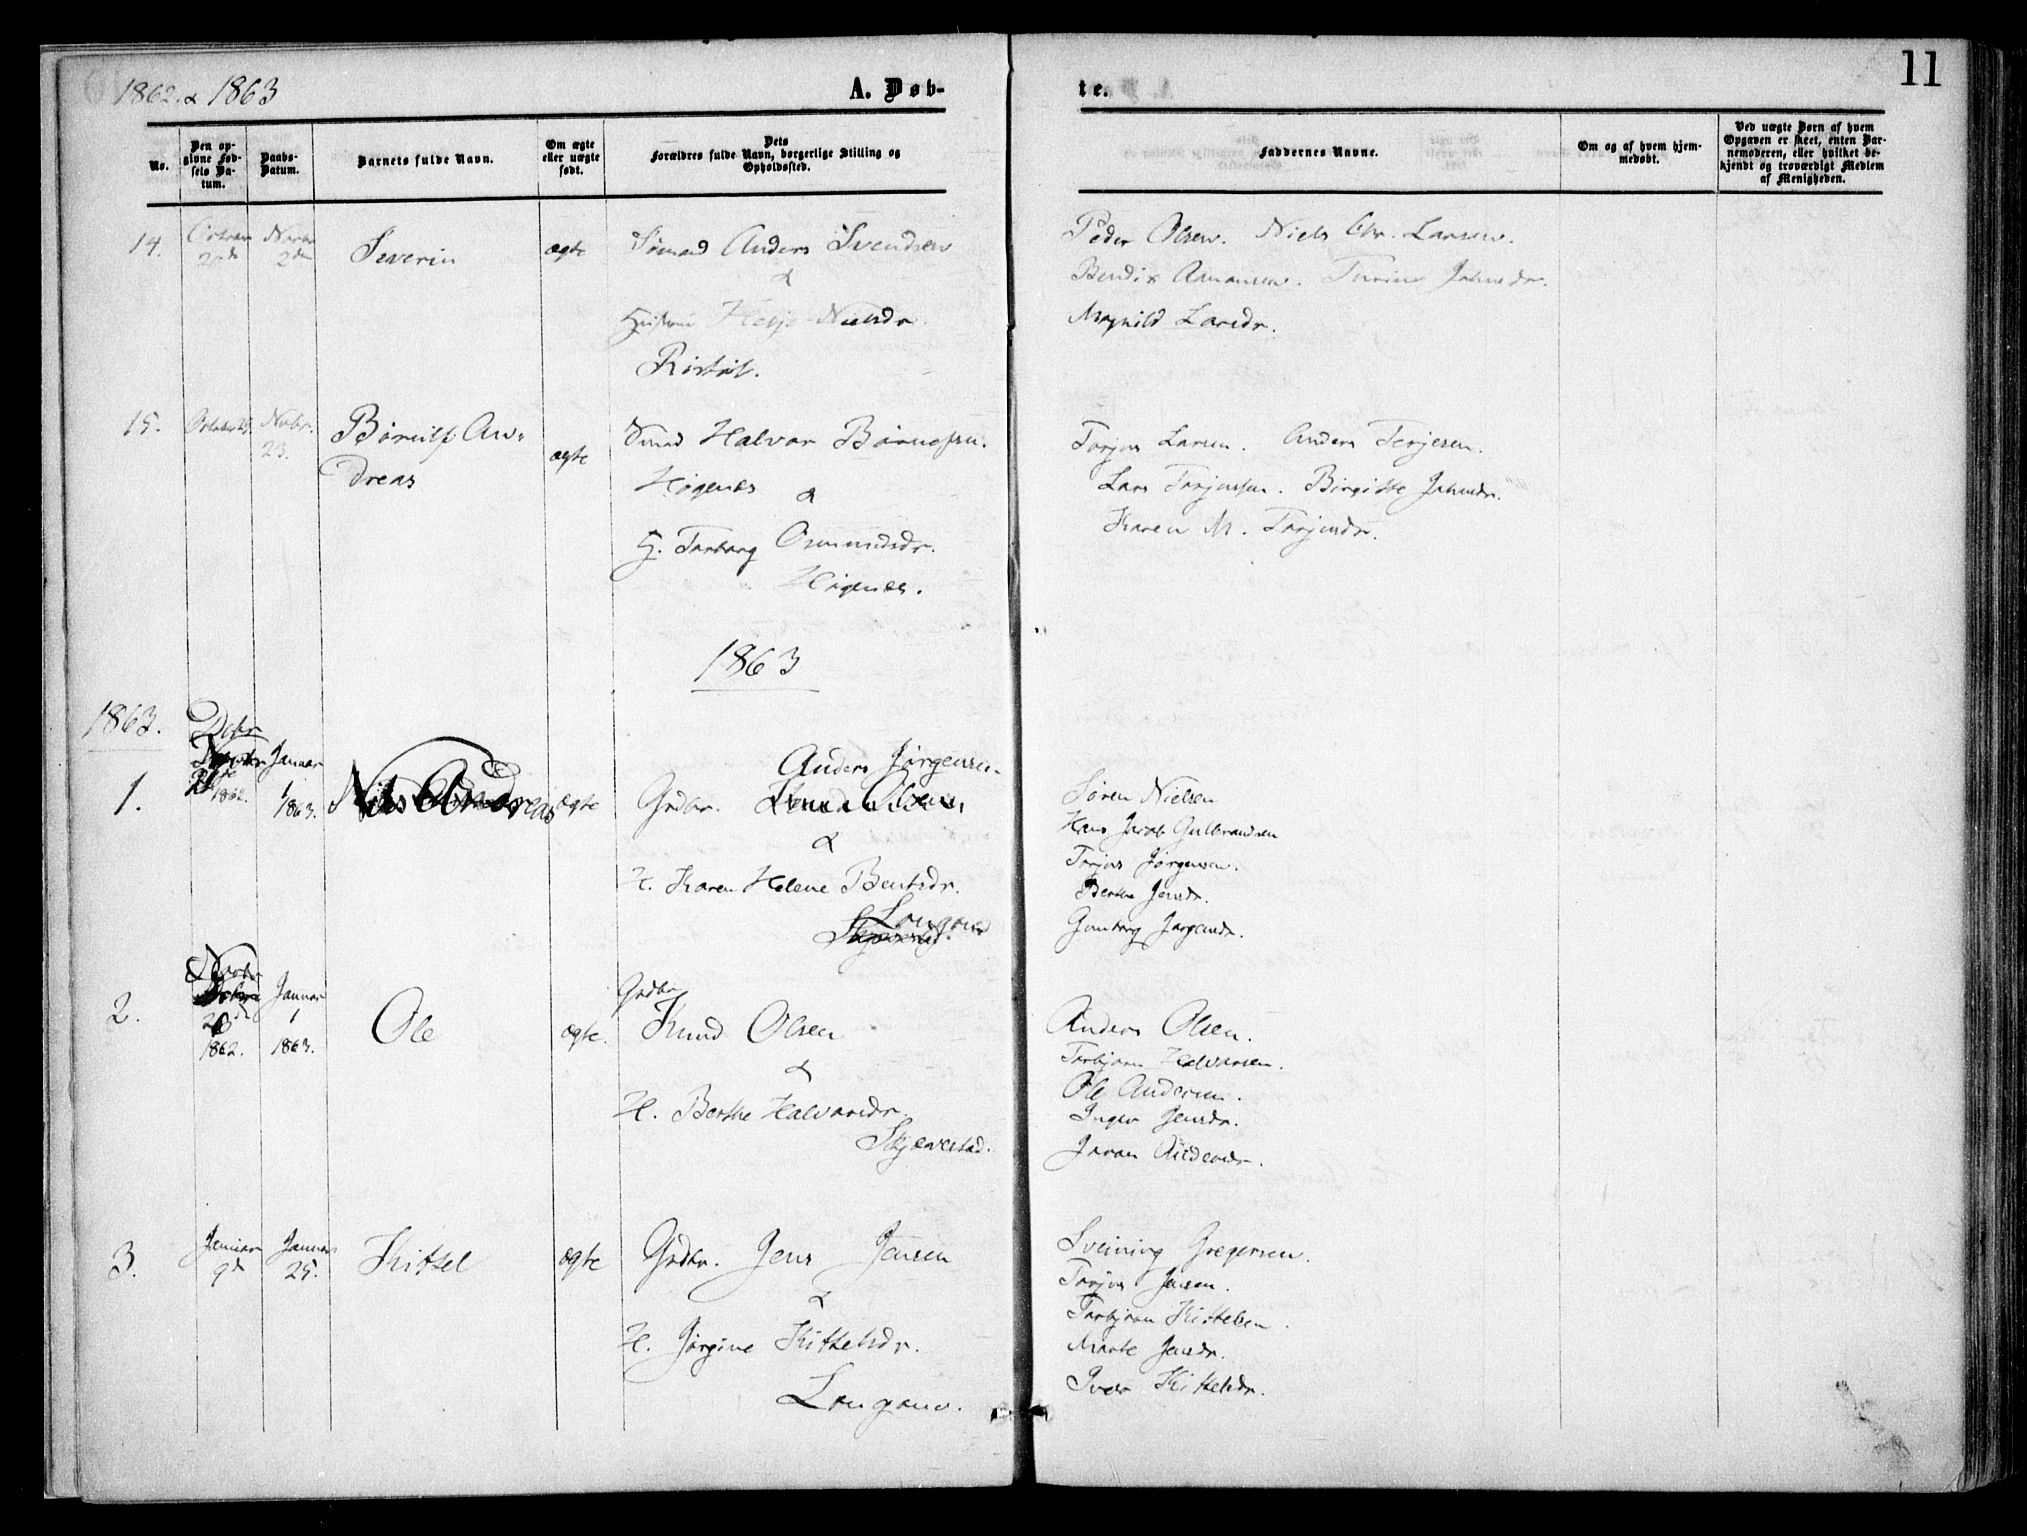 1862. & 1863
A. Døb-
te.
11
No.
Den op-
givne Fød-
sels Da-
tum.
Daabs-
Datum.
Barnets fulde Navn.
Om ægte
eller uægte
født.
Dets
Forældres fulde Navn, borgerlige Stilling og
Opholdssted.
Faddernes Navne.
Om og af hvem hjem-
medøbt.
Ved uægte Børn af hvem
Opgaven er skeet, enten Bar-
nemoderen, eller hvilket be-
kjendt og troværdigt Medlem
af Menigheden.
14.
Severin
ægte
Sømand Anders Svendsen
&
Nielsdr.
Peder Olsen. Niels Chr. Larsen.
Bendix
Magnild Larsdr.
15.
Novbr.
23.
An-
dreas
ægte
Halvor
Høgenes &
H. Torborg
Høgenes.
Torjus Larsen. Anders Terjesen.
Lars Birgitte Johnsdr.
Karen M.
1863
1863.
1.
Debr
1862.
Januar
1
1863.
Nils Andreas
ægte
Anders Jørgensen.
Grdbr.
&
H. Karen Helene Bentsdr.
Longum
Søren Nielsen
Hans Jacob Gulbrandsen
Torjus Jørgensen.
Berthe Jensdr.
Gunborg Jørgensdr.
2.
Novbr
1862.
Januar
1
1863.
Ole
ægte.
Grdbr
Knud Olsen
&
H. Berthe Halvorsdr.
Skjævestad.
Anders Olsen.
Torbjørn Halvorsen.
Ole Andersen.
Inger Jensdr.
3.
Januar
9de
Januar
25.
Kittel
ægte
Grdbr. Jens Jensen
&
H. Jørgine Kittelsdr.
Longum.
Sveining Gregersen.
Torjus Jensen.
Torbjørn Kittelsen.
Marte Jensdr.
Kittelsdr.